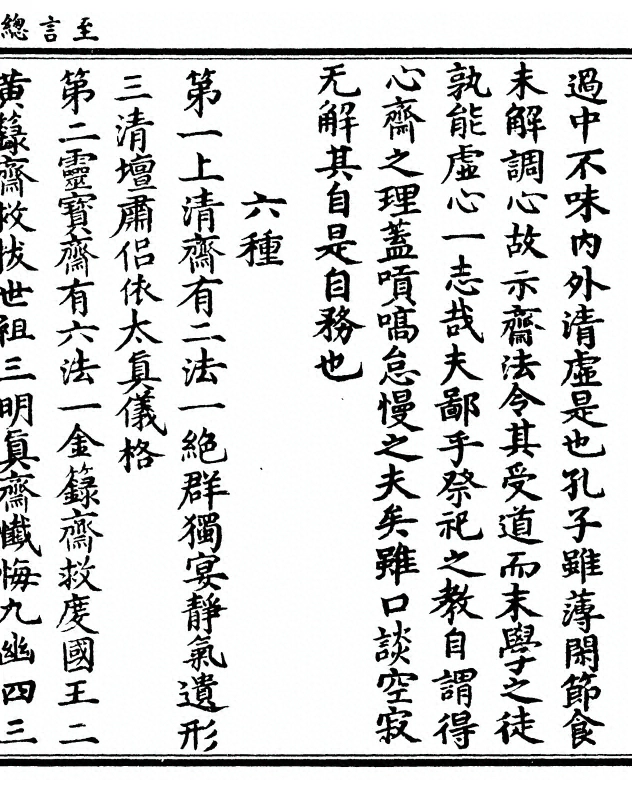 至言總
過中不味內外清虛是也孔子雖薄閑節食
末解調心故示齋法令其受道而末學之徒
孰能虛心一志哉夫鄙乎祭祀之教自謂得
心齋之理蓋嘳嗃怠慢之夫矣雖口談空寂
无解其自是自務也
六種
第一上清齋有二法一絕群獨宴靜氣遺形
三清壇肅侶依太眞儀格
第二靈寶齋有六法一金籙齋救度國王二
黃籙齋救拔世祖三明眞齋懺悔九幽四三